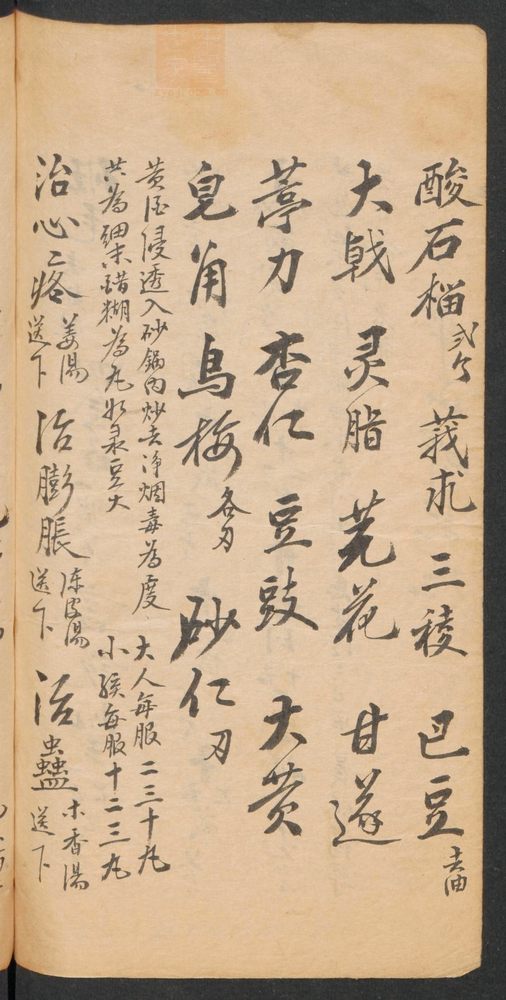 酸石榴 弍个 莪朮 三稜 巴豆 去油
大戟 灵脂 芫花 甘遂
葶力 杏仁 豆豉 大黄
皂角 乌梅 各刄 砂仁 刄
黄酒浸透入砂锅内炒去净烟毒为度 大人每服二三十丸
共为细末醋糊为丸如彔豆大 小孩每服十二三丸
治心疼 姜湯送下 治膨脹 陈皮湯送下 治蟲蠱 木香湯送下